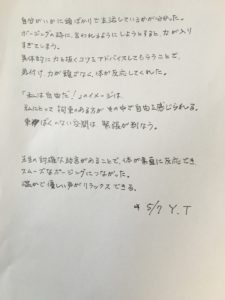 自分がいかに頭ばかりで生活しているかが分かった。
ポージングの時に、言われるようにしようとすると、力が入り
すぎてしまう。
具体的に力を抜くコツをアドバイスしてもらうことで、
気付け、力が緩みなく、体が反応してくれた。
「私は自由だ！」のイメージは、
私にとって 約束のある方が その中で自由を感じられる。
束ばくのない空間は 緊張が割なう。

先生の的確な助言があることで、体が素直に反応でき、
スムーズなポージングにつながった。
温かで優しい声がリラックスできる。
5/7 Y.T